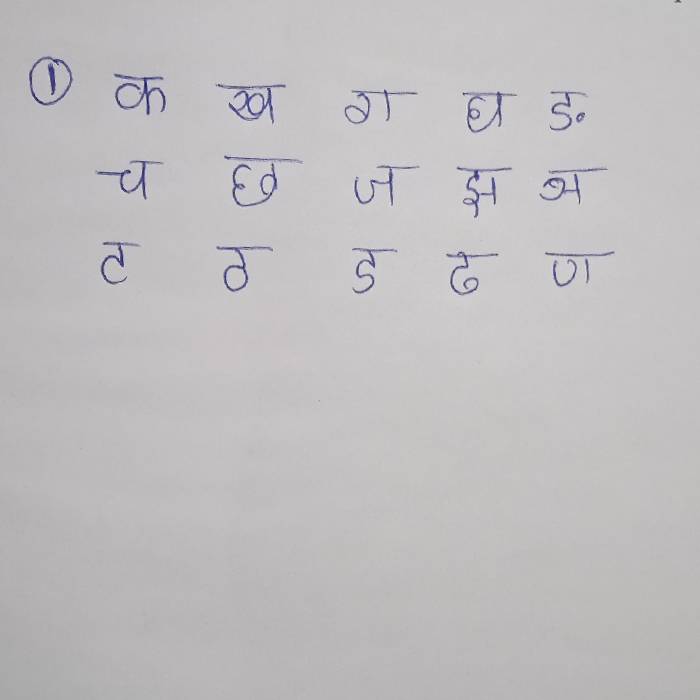 ① क ख ग घ ङ
च छ ज झ ञ
ट ठ ड ढ ण